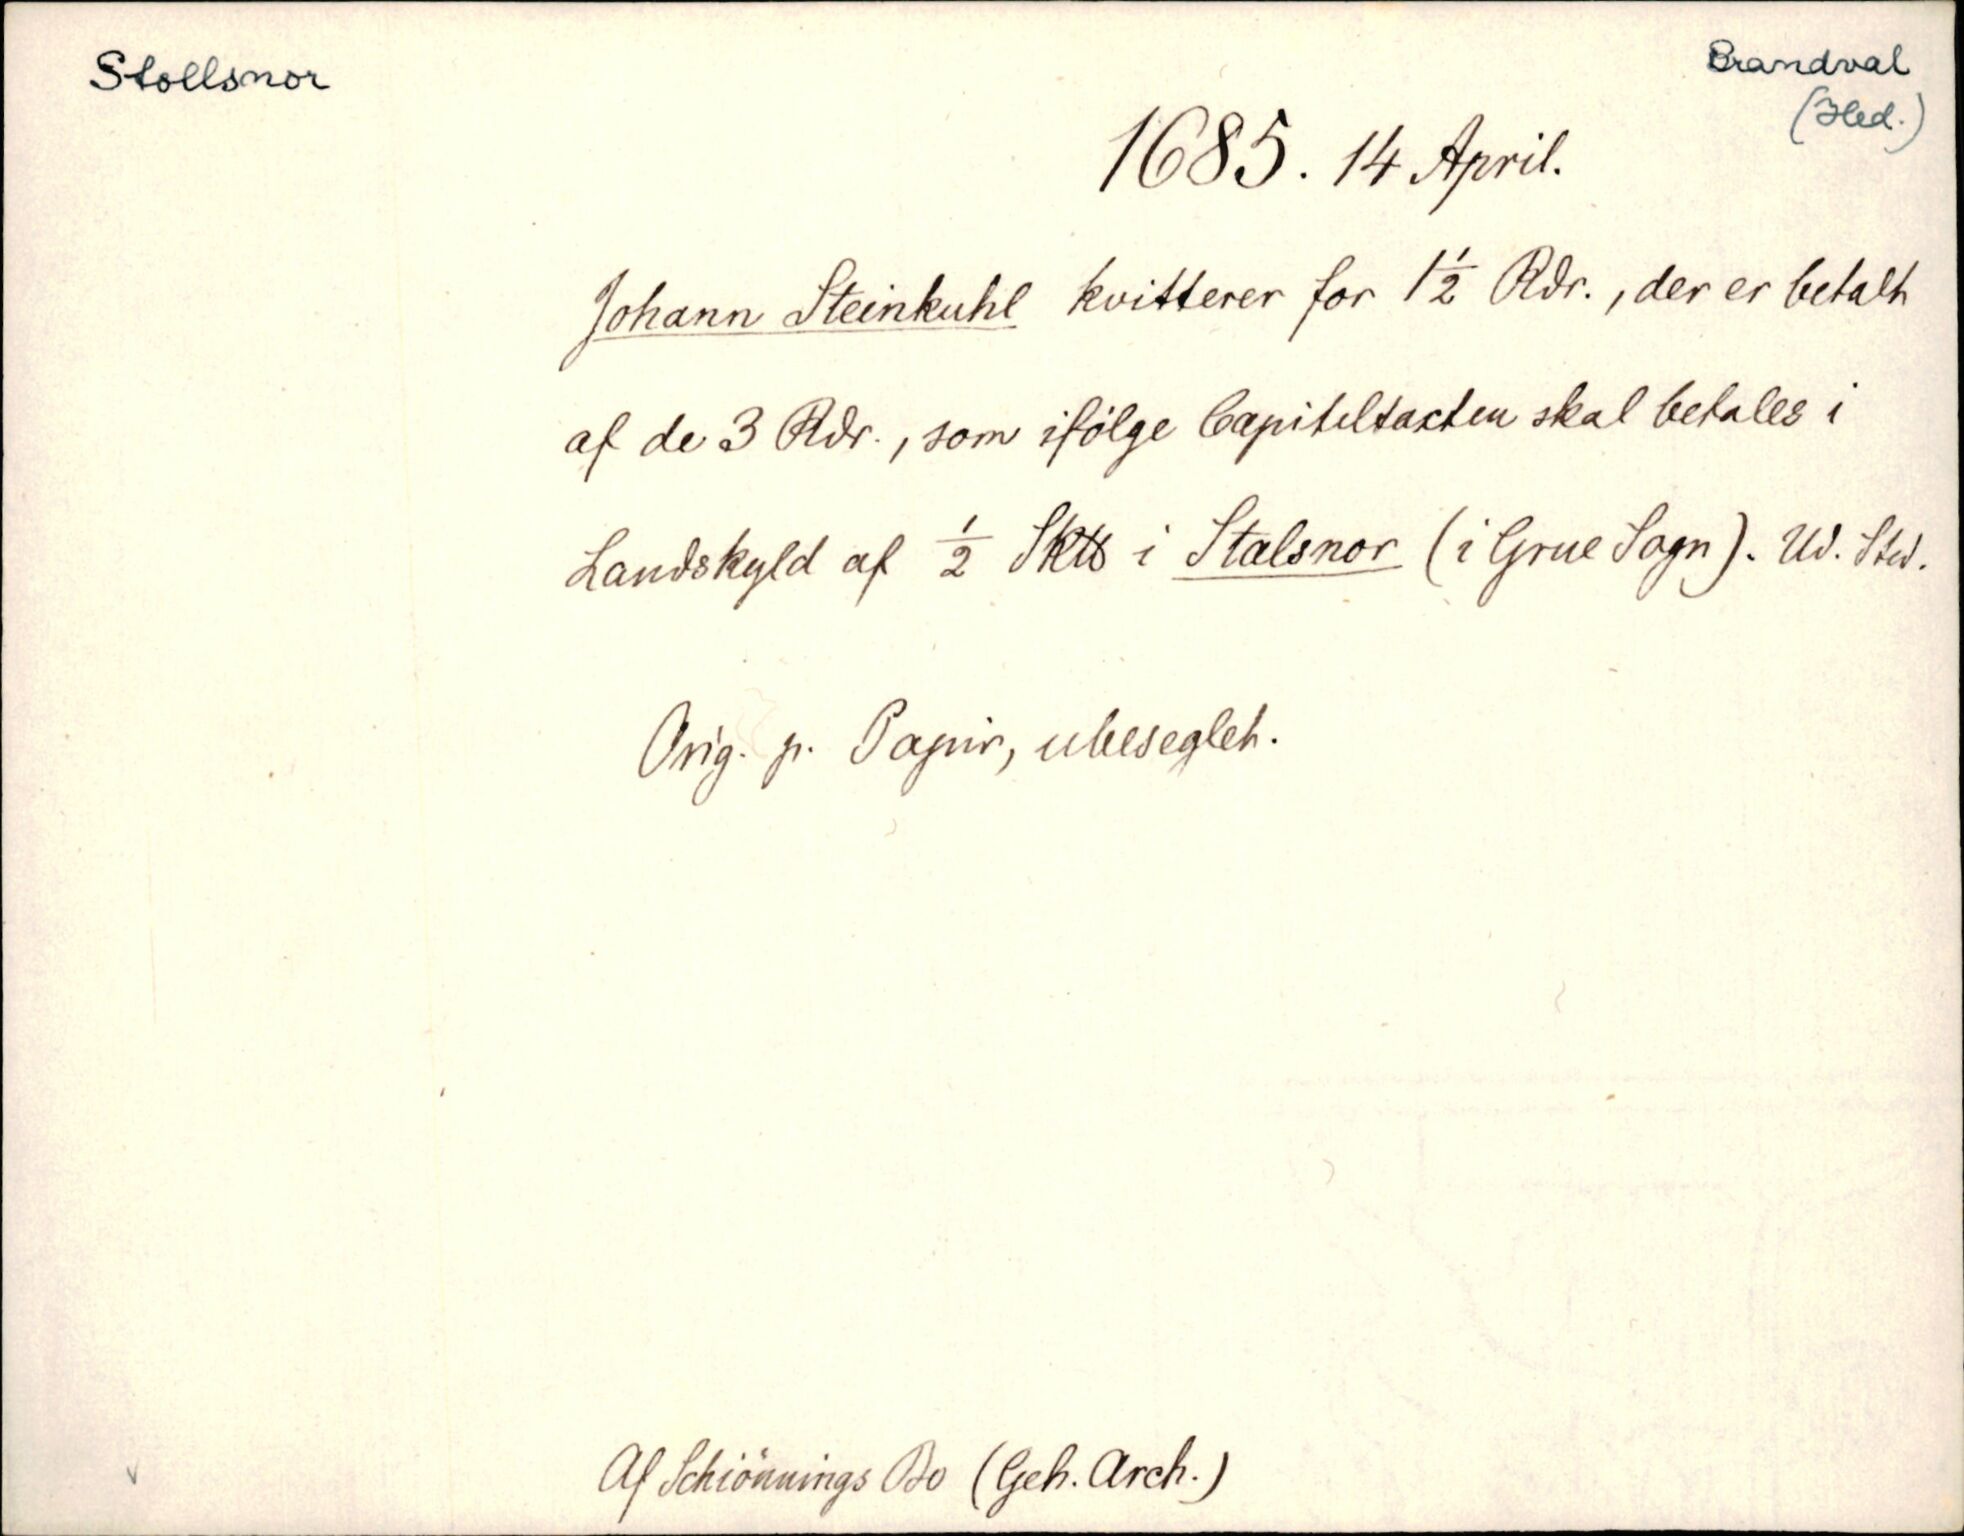 Stollsnor
Brandval
(Hed.)
1685. 14 April.
Johann Steinkuhl kvitterer for 1½ Rdr., der er betalt
af de 3 Rdr., som ifölge Capiteltaxten skal betales i
Landskyld af ½ Sk℔ i Stalsnor (i Grue Sogn). Ud. Sted.
Orig. p. Papir, ubeseglet.
Af Schiönnings Bo (Geh. Arch.)